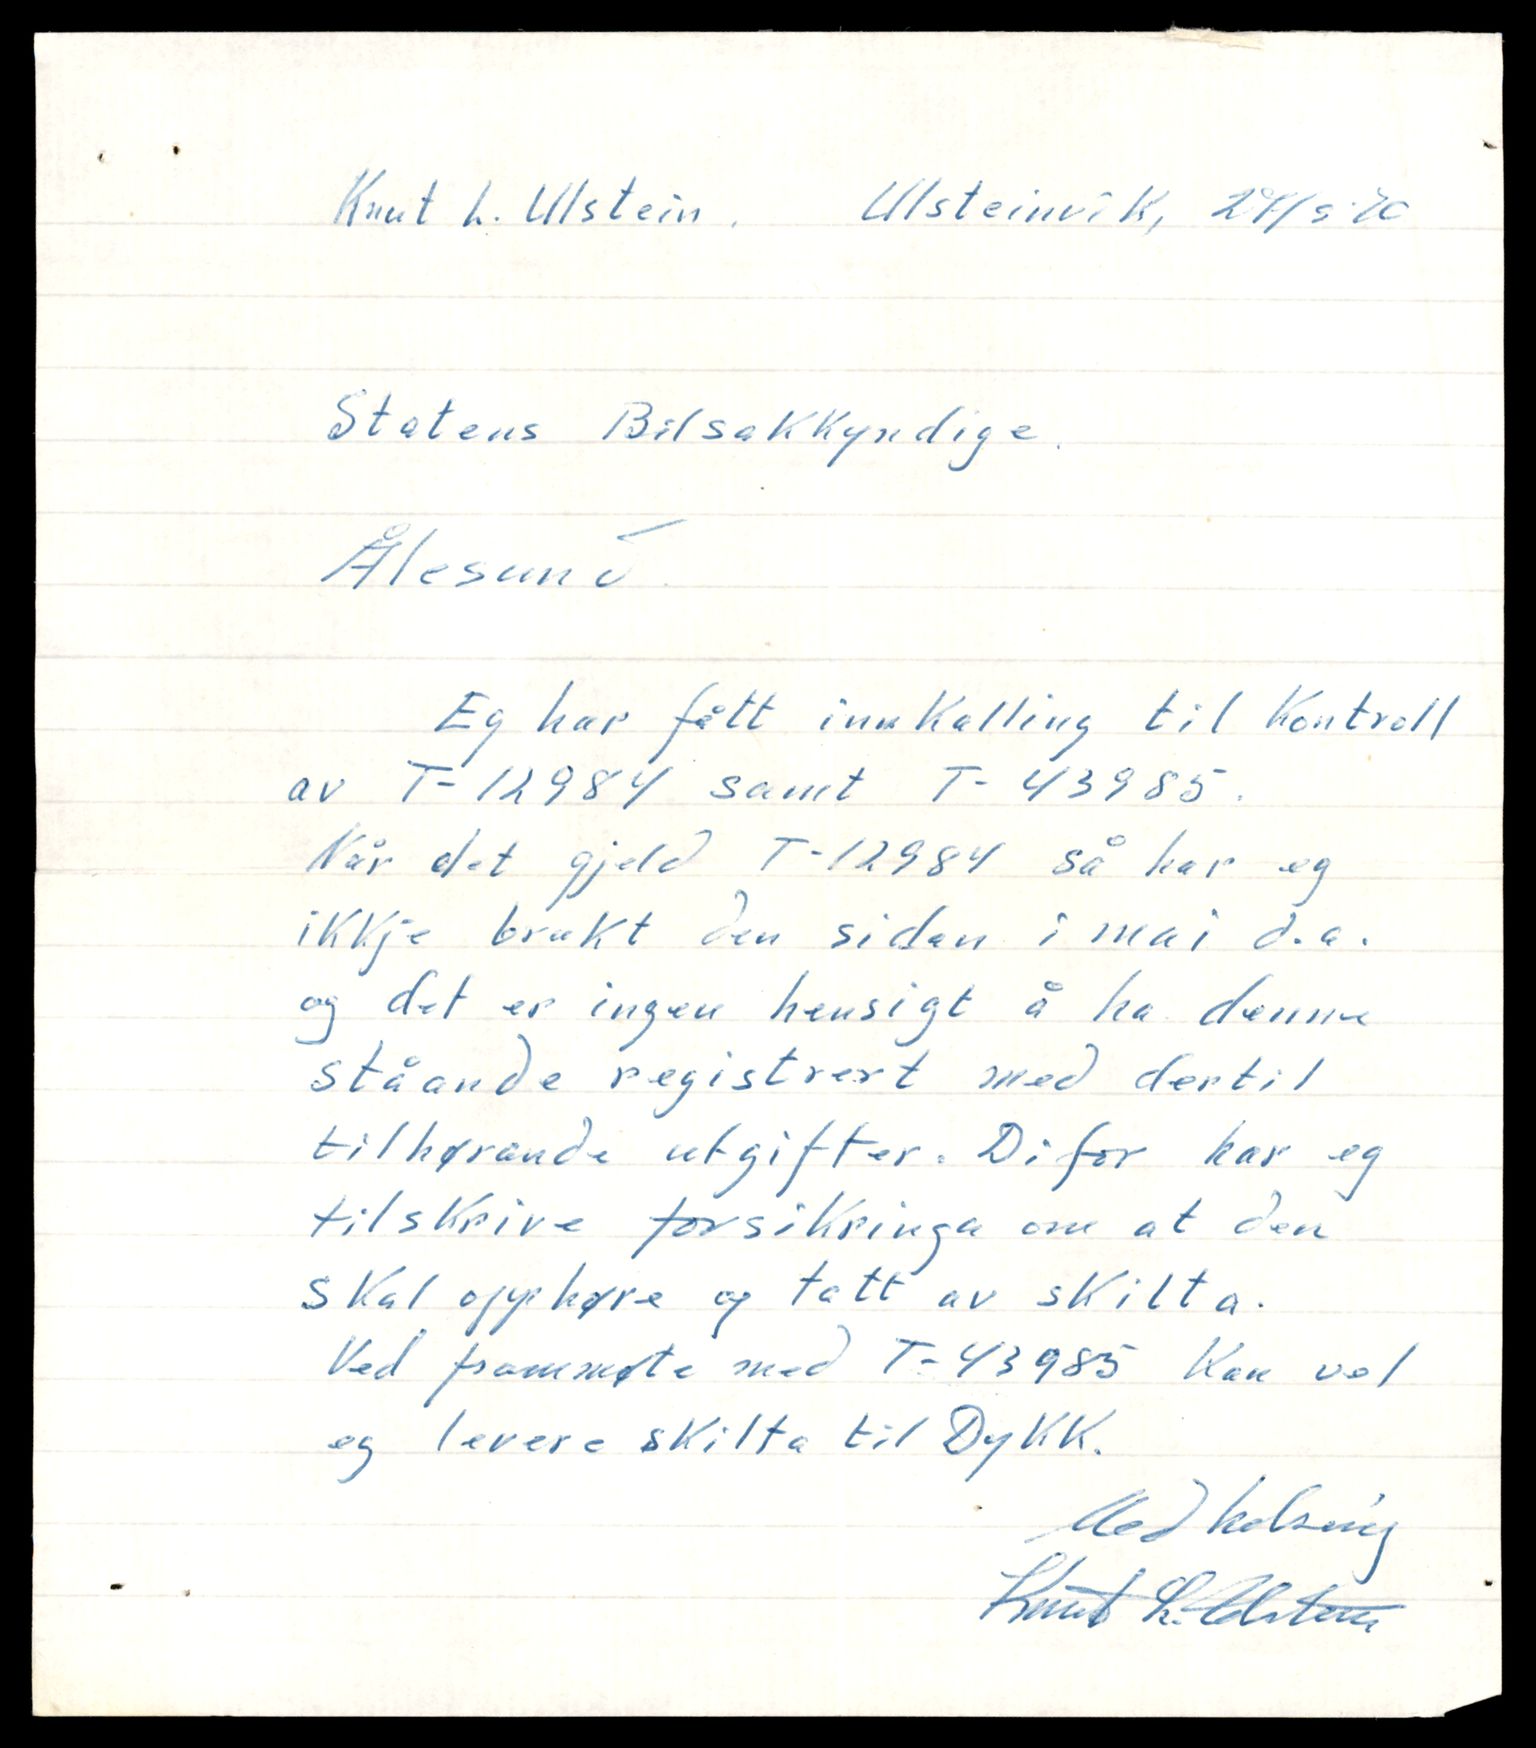 Knut L. Ulstein. Ulsteinvik,
Statens Bilsakkyndige.
Ålesund.
Eg har fått innkalling til kontroll
av T-12984 samt T-43985.
Når det gjeld T-12984 så har eg
ikkje brukt den sidan i mai d.a.
og det er ingen hensigt å ha denne
ståande registrert med dertil
tilhørande utgifter. Difor har eg
tilskrive forsikringa om at den
skal opphøre og tatt av skilta.
Ved frammøte med T-43985 kan vel
eg levere skilta til Dykk.
Med helsing
Knut L. Ulstein